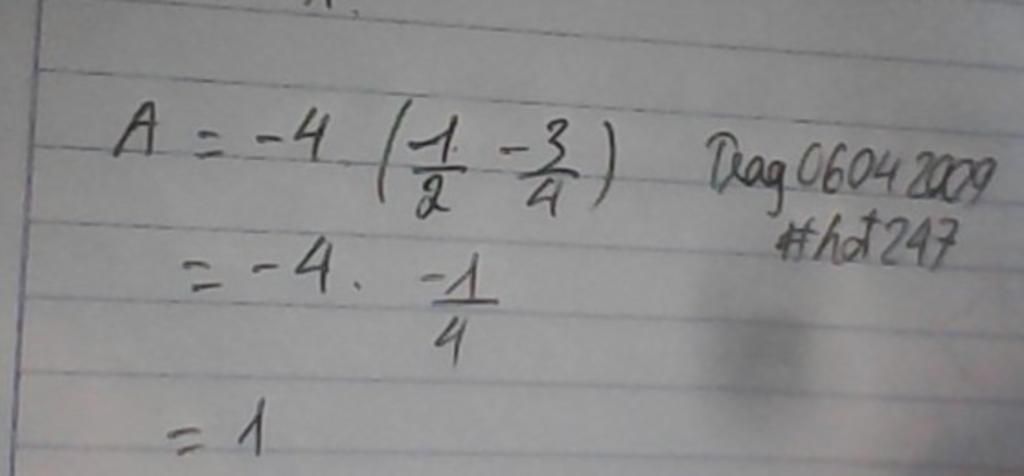 A = -4 (1/2 - 3/4)
Drag06042009
#hot247
= -4 . -1/4
= 1